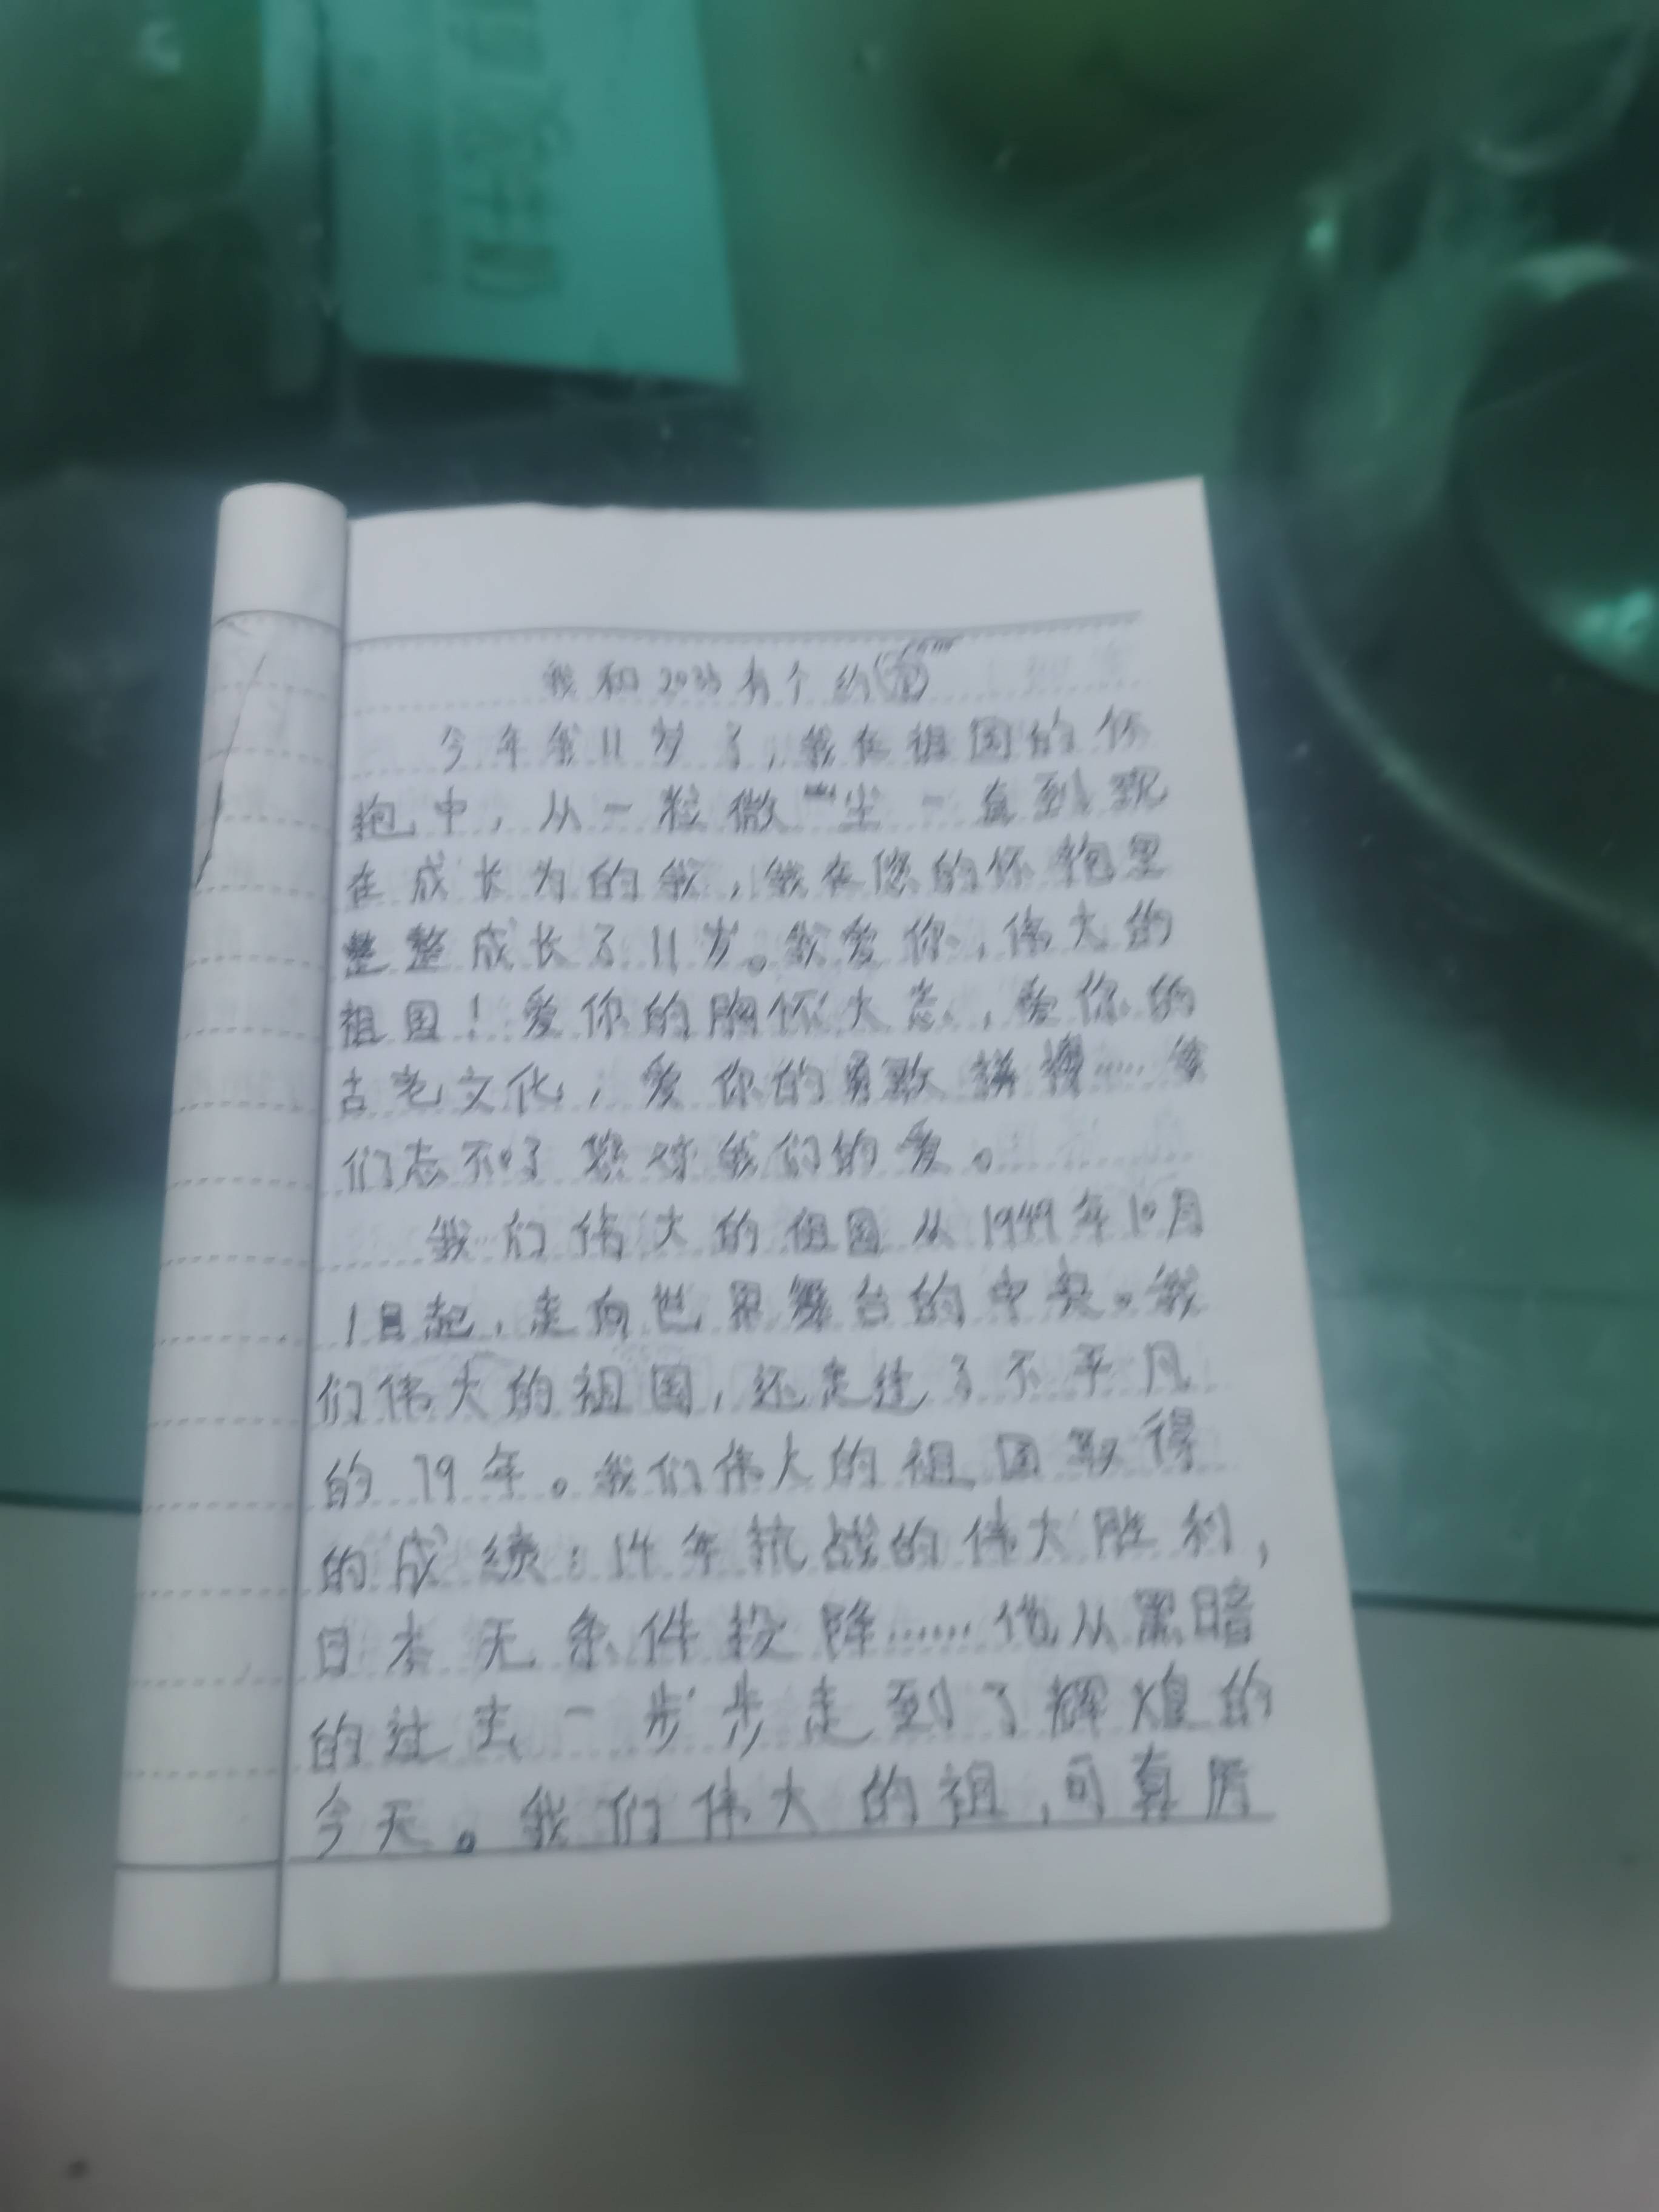 我和2035有个约定
今年我11岁了,我在祖国的怀
抱中,从一粒微尘一直到现
在成长为的我,我在您的怀抱里
整整成长了11岁。我爱你,伟大的
祖国!爱你的胸怀大志,爱你的
古老文化,爱你的勇敢拼搏……我
们忘不了您对我们的爱。
我们伟大的祖国从1949年10月
1日起,走向世界舞台的中央。我
们伟大的祖国,还走过了不平凡
的79年。我们伟大的祖国取得
的成绩:14年抗战的伟大胜利,
日本无条件投降……他从黑暗
的过去一步步走到了辉煌的
今天。我们伟大的祖,可真厉